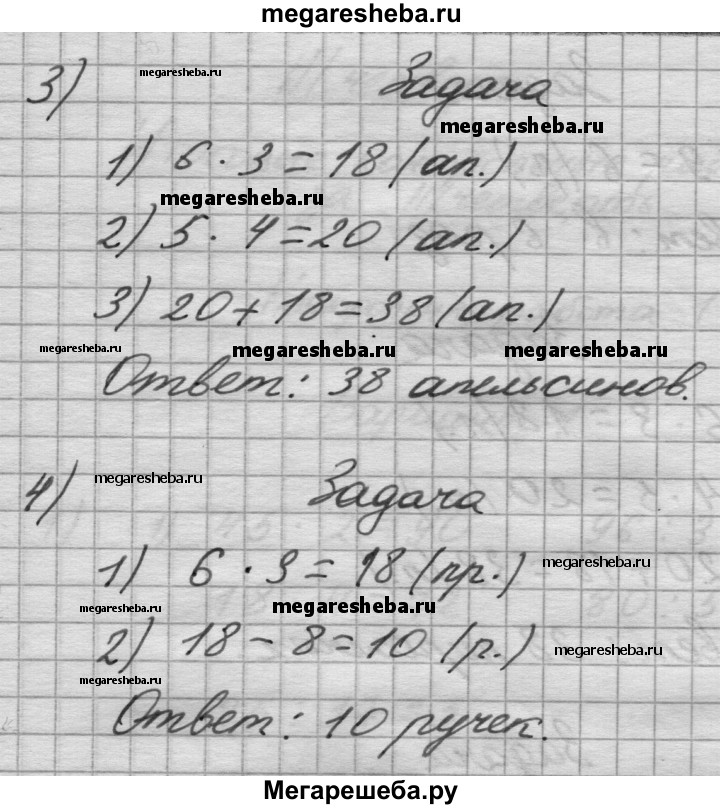 megaresheba.ru
3) megaresheba.ru Задача
megaresheba.ru
1) 6 · 3 = 18 (ап.)
megaresheba.ru
2) 5 · 4 = 20 (ап.)
3) 20 + 18 = 38 (ап.)
megaresheba.ru megaresheba.ru megaresheba.ru
Ответ: 38 апельсинов.
4) megaresheba.ru Задача
1) 6 · 3 = 18 (пр.) megaresheba.ru
megaresheba.ru megaresheba.ru
2) 18 - 8 = 10 (р.) megaresheba.ru
megaresheba.ru
Ответ: 10 ручек.
Мегарешеба.ру